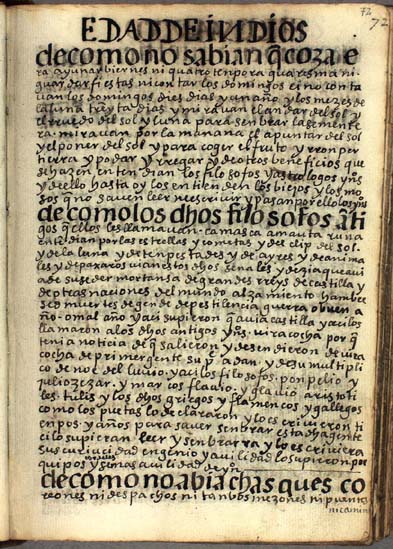 72
72
EDAD DE INDIOS
de como no sabian q̃ coza e
ra ayunar biernes ni quatro tenpora quaresma ni
guardar fiestas ni contar los domingos cino conta
uan los domingos dies dias y un año y los mezes de
la luna treyta dias y mirauan el andar del sol y
el rruedo del sol y luna para senbrar la semente
ra mirauan por la manana el apuntar del sol
y el poner del sol y para coger el fruto y rronper
tierra y podar y rregar y de otros beneficios que
se hazen entendian los filosofos y astrologos yn̄s
y de ello hasta oy los entienden los biejos y los mo
sos q̃ no sauen leer ni escriuir y pasan por ello los yn̄s
de como los dhos filosofos ãti
gos q̃ ellos les llamauan camasca amauta runa
entendian por las estrellas y cometas y del clip del sol
y de la luna y de tenpestades y de ayres y de anima
les y de paxaros uian estos dhos señales y dezia que auia
de suseder mortansa de grandes rreys de castilla y
de otras naciones del mundo alzamiento hanbre
sed muertes de gente de pestilencia guerra o buen a
ño o mal año y aci supieron q̃ auia castilla y aci los
llamaron a los dhos antigos yn̄s uiracocha por q̃
tenia noticia de q̃ salieron y desendieron de uira
cocha de primer gente su p̃ adan y de su multiplí
co de noe del luuio y aci los filosofos ponpelio y
julio zezar y marcos flauio y glauio aristoti
les tulis y los dhos griegos y flamincos y gallegos
como los puetas lo declararon y lo escriuieron ti
enpos y años para sauer senbrar esta dha gente
ci lo supieran leer y senbrar ra y lo escriuiera
sus curiucidad engenio y auilidad lo supieron por
quipos y señas auilidad de yn̄s
de como no abia chasques co
rreones ni despachos ni tanbos mezones ni puentes
ni camin